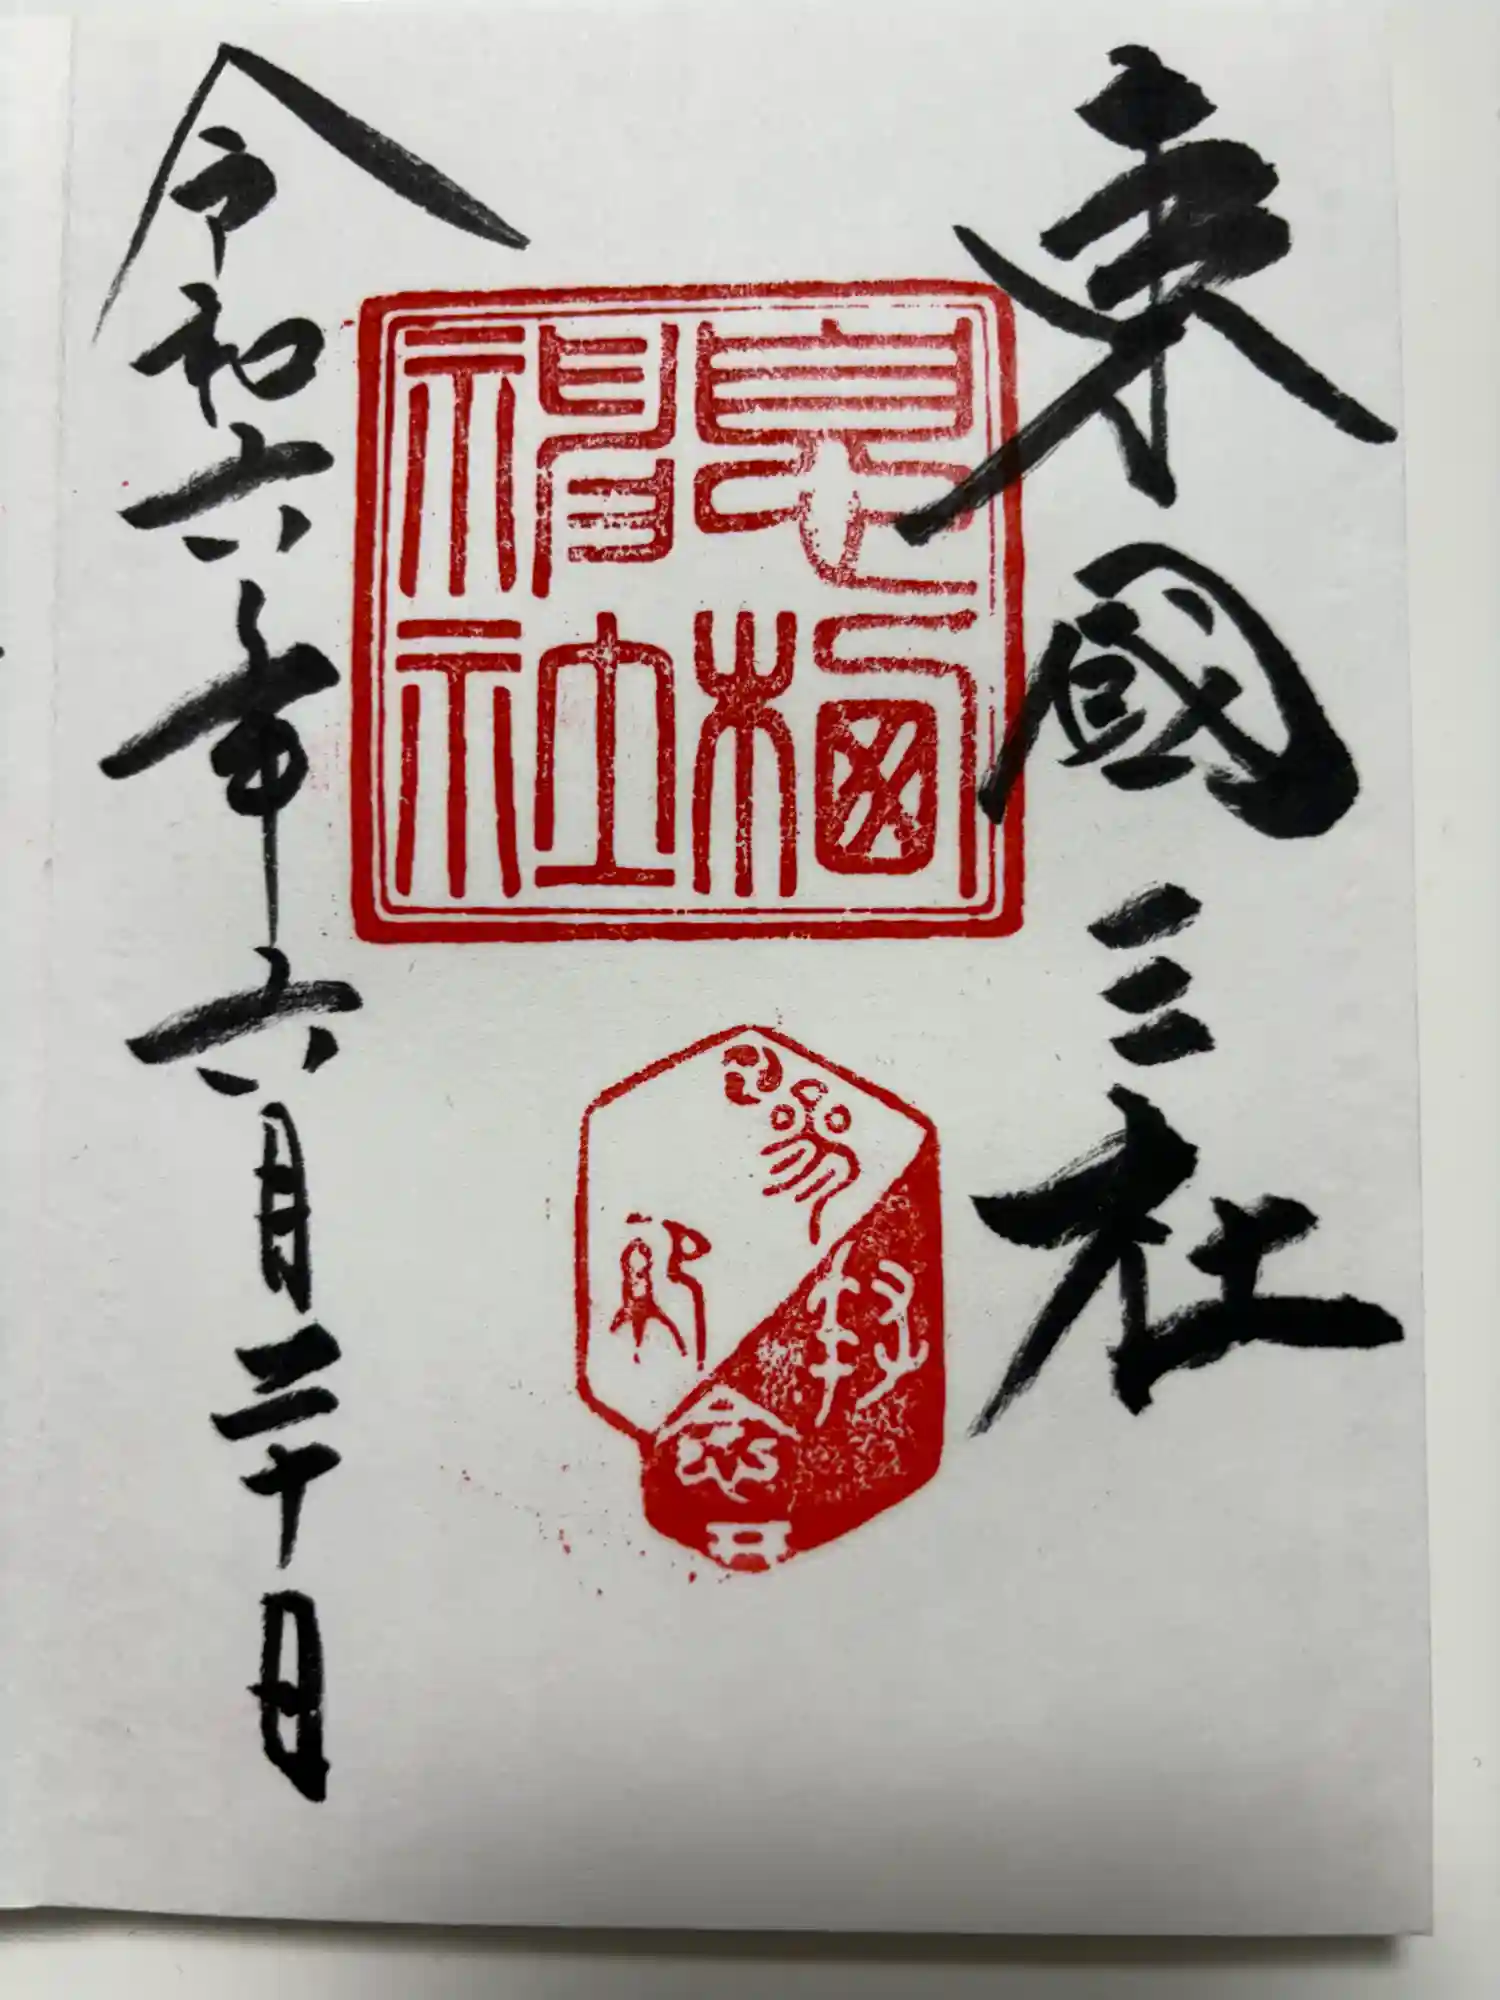 東國三社
息栖神社
令和六年六月二十日